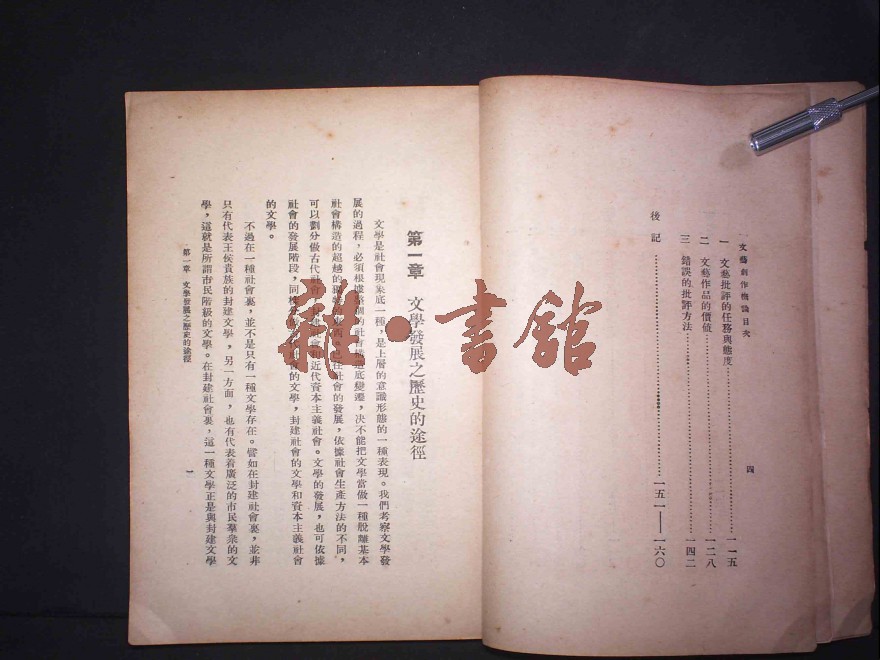 文藝創作概論目次
四
一 文藝批評的任務與態度……一一五
二 文藝作品的價値……一二八
三 錯誤的批評方法……一四二
後記……一五一——一六〇
第一章 文學發展之歷史的途徑
文學是社會現象底一種，是上層的意識形態的一種表現。我們考察文學發
展的過程，必須根據整個的社會構造底變遷，決不能把文學當做一種脫離基本
社會構造的超越的獨特的東西。在社會的發展，依據社會生產方法的不同，
可以劃分做古代社會，封建社會和近代資本主義社會。文學的發展，也可依據
社會的發展階段，同樣分做古代社會的文學，封建社會的文學和資本主義社會
的文學。
不過在一種社會裏，並不是只有一種文學存在。譬如在封建社會裏，並非
只有代表王侯貴族的封建文學，另一方面，也有代表着廣泛的市民羣衆的文
學，這就是所謂市民階級的文學。在封建社會裏，這一種文學正是與封建文學
第一章 文學發展之歷史的途徑
一
雜·書館